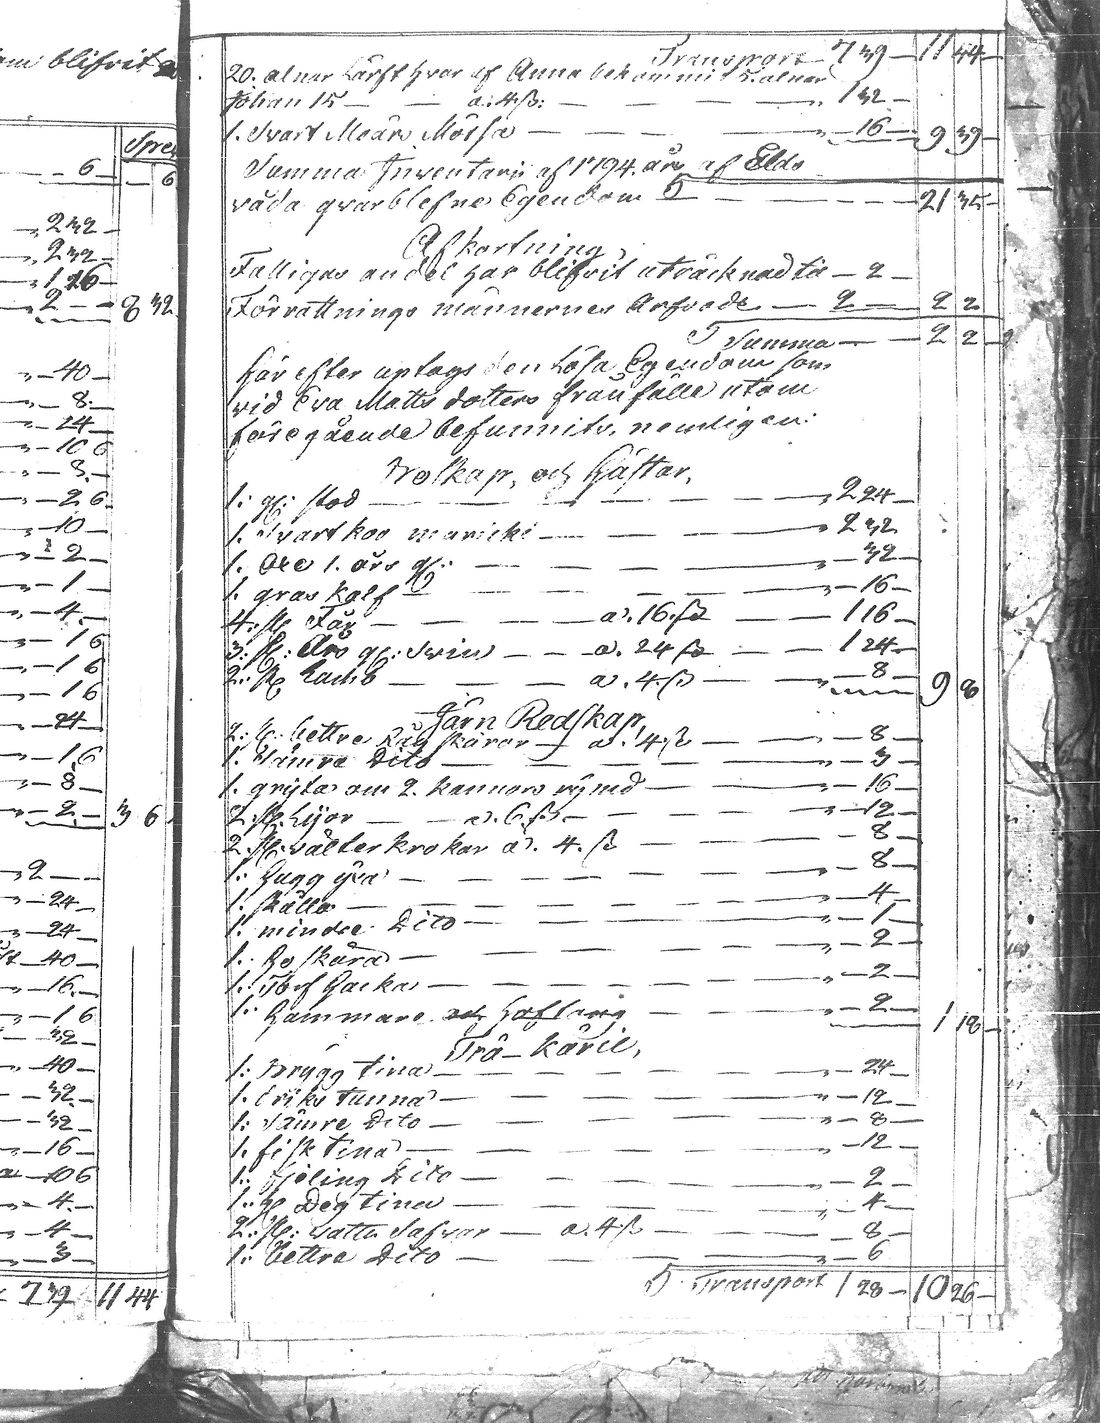 om blifvit
Spec
6 6
2 32
2 32
1 16
2 8 32
40
8
24
10 6
8
2 6
10
2
1
4
1 6
1 6
1 6
24
1 6
8
2 3 6
2
24
24
40
16
1 6
32
40
32
32
16
10 6
4
4
3
7 39 11 44
Transport 7 39 11 44
20. alnar Lärft hvar af Anna bekommit 5. alnar
Johan 15 a. 4 ß: 1 32
1. Svart Mössa 16 9 39
Summa Inventarii af 1794. års af Elds
våda qvarblefne Egendom 21 35
Afkortning,
Fattigas andel har blifvit uträcknad til 2
Förrättnings männernes Arfvode 2 2 2
Summa 2 2
Här efter uptogs den Lösa Egendom som
vid Eva Matts dotters frånfälle utom
föregående befunnits, nemligen:
Boskap, och Hästar,
1: gl: stod 2 24
1. Svart koo 2 32
1. 1. års gl: 32
1. gras kalf 16
4: st Får a. 16. ß 1 16
3: st: Års gl: Svin a. 24 ß 1 24
2: st Lamb a. 4. ß 8 9 8
Järn Redskap,
2: st: bettre Råg skäror a. 4 ß 8
1. Sämre Dito 3
1. gryta om 2. kannors rymd 16
2 st: Lijor a. 6. ß 12
2 st: välter krokar a. 4. ß 8
1: Hugg yxa 8
1. skälla 4
1: mindre Dito 1
1. Ho skåra 2
1: Torf Hacka 2
1: Hammare och Hoftång 2 1 18
Trä-käril,
1: Brygg tina 24
1. Driks tunna 12
1: Sämre Dito 8
1. fisk tina 12
1: Dito 2
1: st Deg tina 4
2: st: vattu Så a. 4 ß 8
1: bettre Dito 6
Transport 1 28 10 26